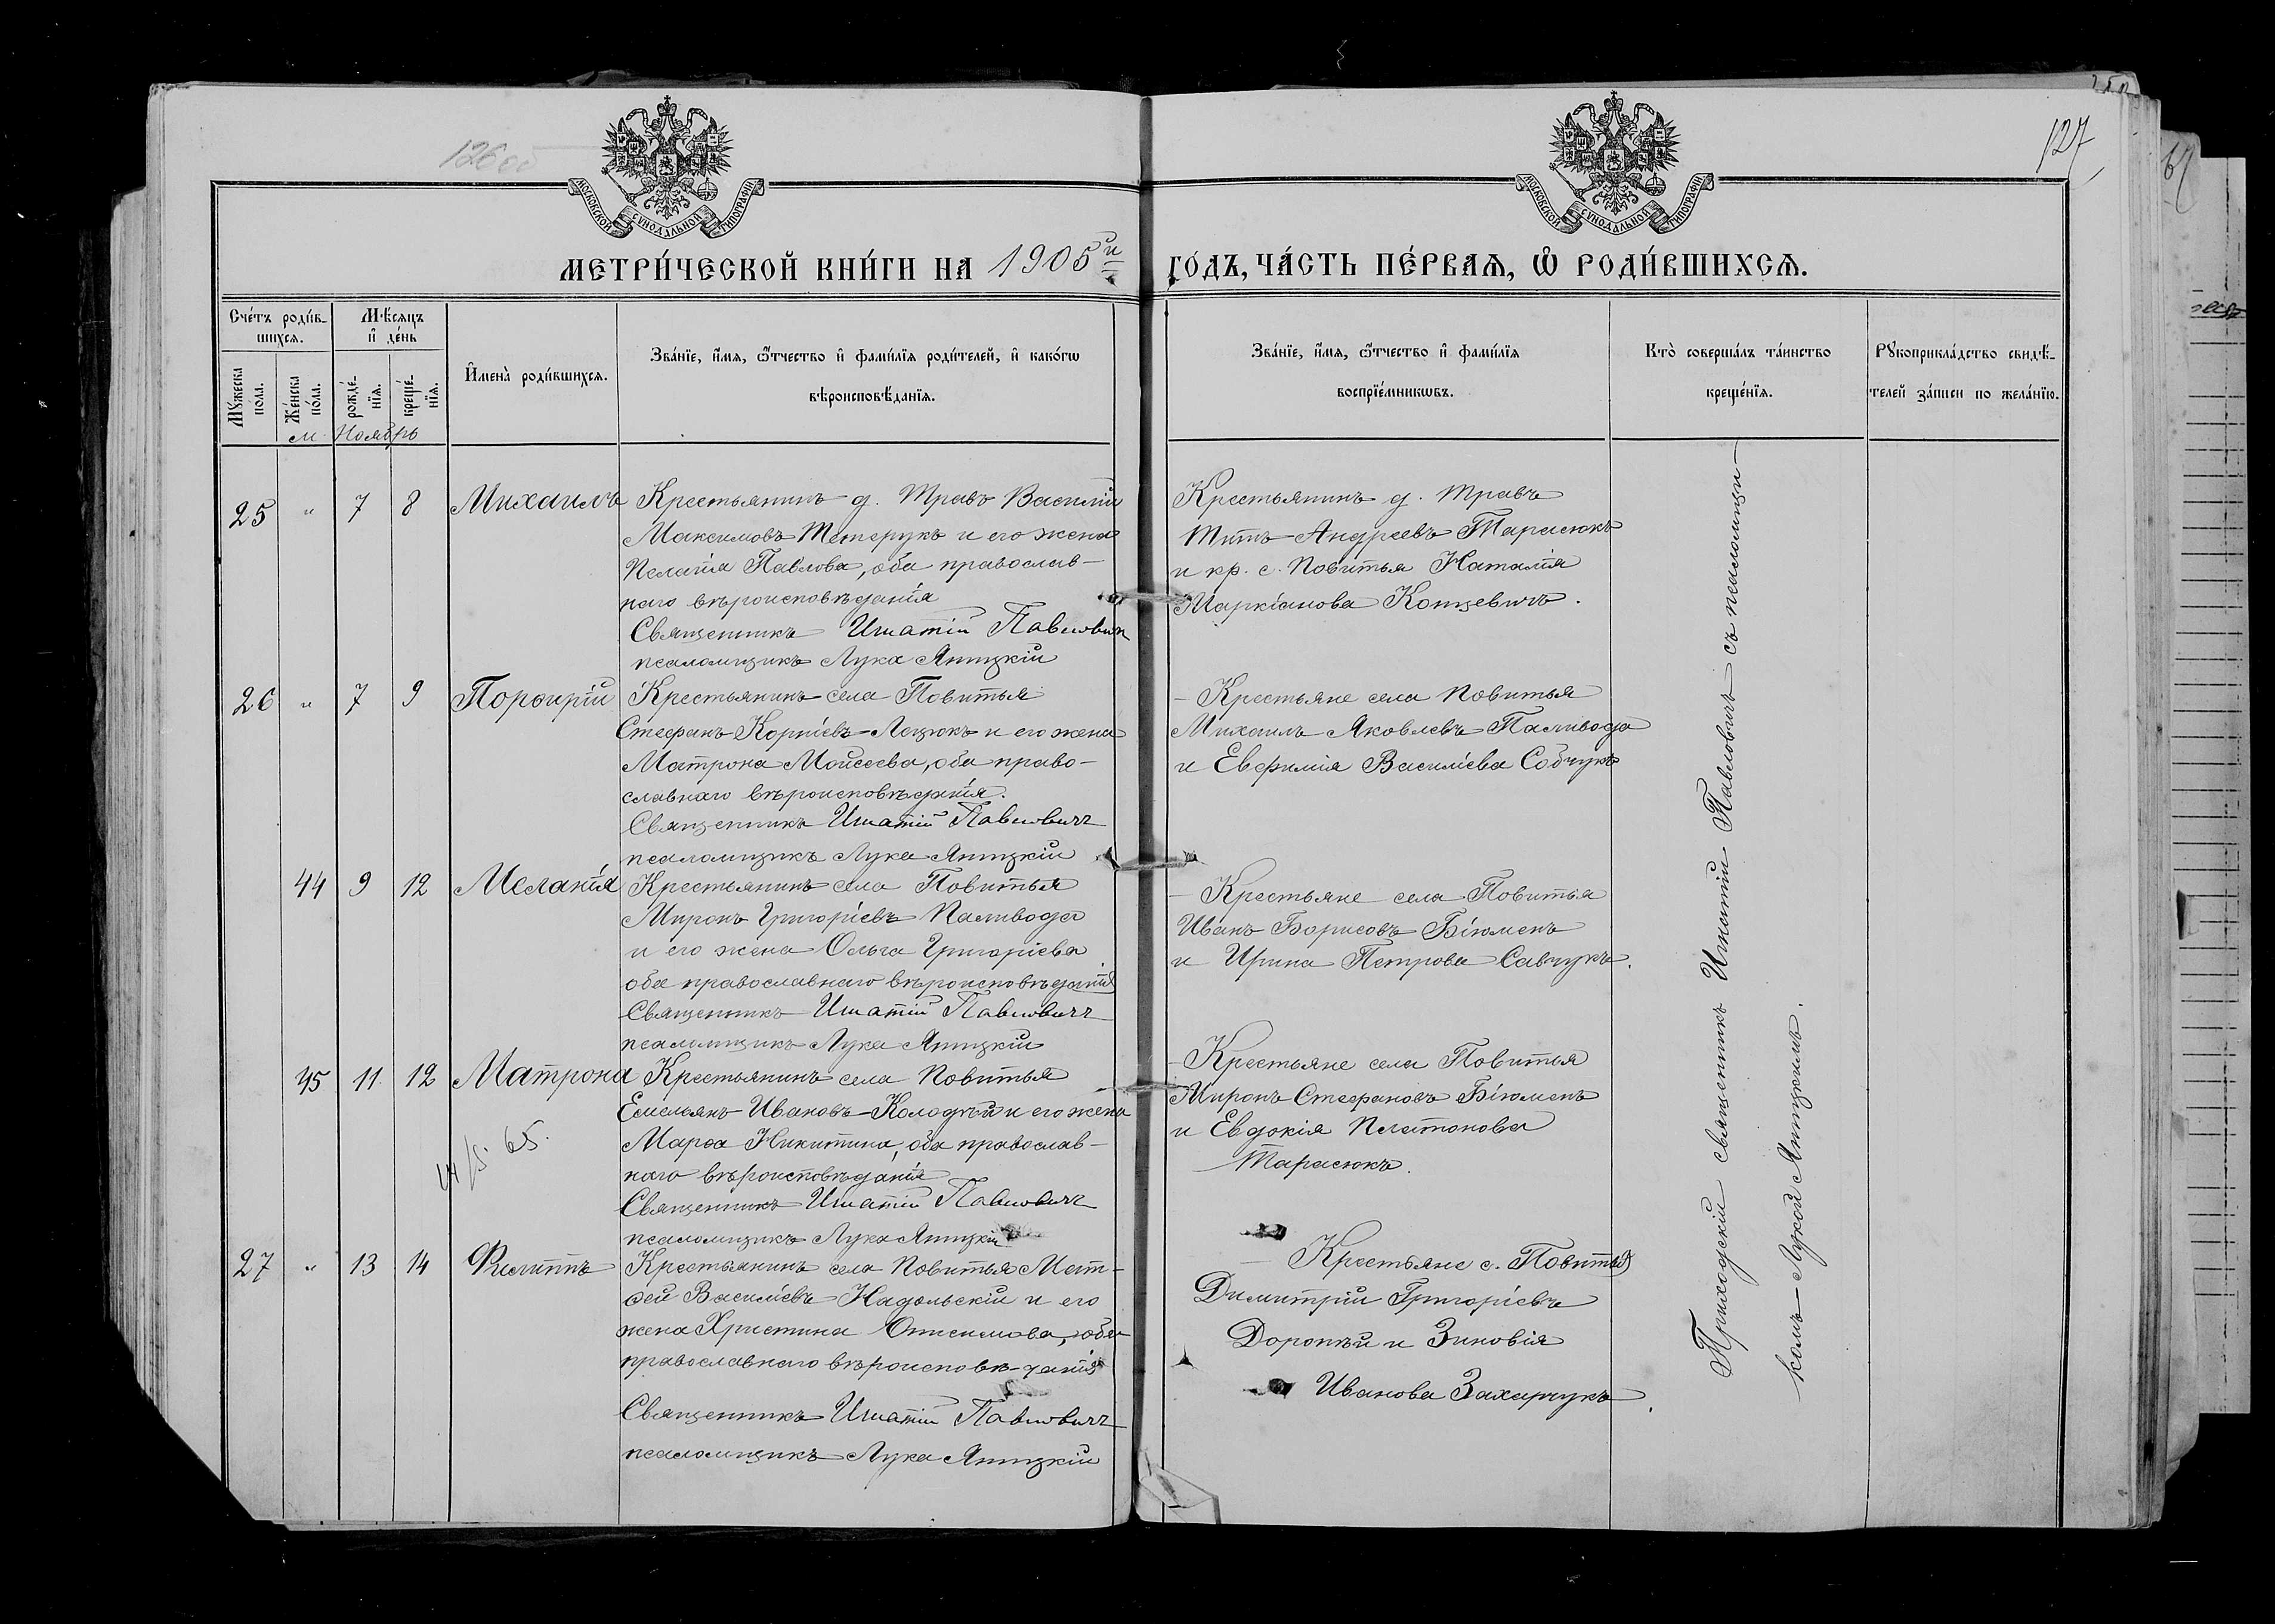 126об
127
МОСКОВСКОЙ СѴНОДАЛЬНОЙ ТИПОГРАФІИ
МОСКОВСКОЙ СѴНОДАЛЬНОЙ ТИПОГРАФІИ
МЕТРИ́ЧЕСКОЙ КНИ́ГИ НА 1905й ГО́ДЪ, ЧА́СТЬ ПЕ́РВАѦ, Ѡ РОДИ́ВШИХСѦ.
Сче́тъ роди́в-
шихсѧ.
Мꙋ́жеска
пола.
Же́нска
пола.
Мѣ́сѧцъ
и҆ де́нь
рожде́-
нїѧ.
креще́-
нїѧ.
И҆мена̀ роди́вшихсѧ.
Зва́нїе, и҆́мѧ, ѻ҆́тчество и҆ фами́лїѧ роди́телей, и҆ како́гѡ
вѣроисповѣ́данїѧ.
Зва́нїе, и҆́мѧ, ѻ҆́тчество и҆ фами́лїѧ
воспрїе́мникѡвъ.
Кто̀ соверша́лъ та́инство
креще́нїѧ.
Рꙋкоприкла́дство свидѣ́-
телей за́писи по жела́нїю.
м. Ноябрь
25 " 7 8 Михаилъ
Крестьянинъ д. Травъ Василій
Максимовъ Тетерукъ и его жена
Пелагія Павлова, оба православ-
наго вѣроисповѣданія
Священникъ Игнатій Павловичъ
псаломщикъ Лука Яницкій
Крестьянинъ д. Травъ
Титъ Андреевъ Тарасюкъ
и кр. с. Повитья Наталія
Маркіанова Концевичъ.
26 " 7 9 Порфирій
Крестьянинъ села Повитья
Стефанъ Корніевъ Лецюкъ и его жена
Матрона Моисеева, оба право-
славнаго вѣроисповѣданія.
Священникъ Игнатій Павловичъ
псаломщикъ Лука Яницкій
- Крестьяне села Повитья
Михаилъ Яковлевъ Паливода
и Евфимія Василіева Собчукъ
44 9 12 Меланія
Крестьянинъ села Повитья
Миронъ Григоріевъ Паливода
и его жена Ольга Григоріева
оба православнаго вѣроисповѣданія
Священникъ Игнатій Павловичъ
псаломщикъ Лука Яницкій
- Крестьяне села Повитья
Иванъ Борисовъ Бігоменъ
и Ирина Петрова Савчукъ.
45 11 12 Матрона
Крестьянинъ села Повитья
Емельянъ Ивановъ Колодѣй и его жена
Марѳа Никитина, оба православ-
наго вѣроисповѣданія
Священникъ Игнатій Павловичъ
псаломщикъ Лука Яницкій
- Крестьяне села Повитья
Миронъ Стефановъ Бігоменъ
и Евдокія Платонова
Тарасюкъ.
27 " 13 14 Филиппъ
Крестьянинъ села Повитья Мат-
ѳей Василіевъ Надольскій и его
жена Христина Онисимова, оба
православнаго вѣроисповѣ-данія
Священникъ Игнатій Павловичъ
псаломщикъ Лука Яницкій
Крестьяне с. Повитья
Димитрій Григоріевъ
Доропѣй и Зиновія
Иванова Захарчукъ.
Приходскій священникъ Игнатій Павловичъ съ псаломщи-
комъ Лукой Яницкимъ.